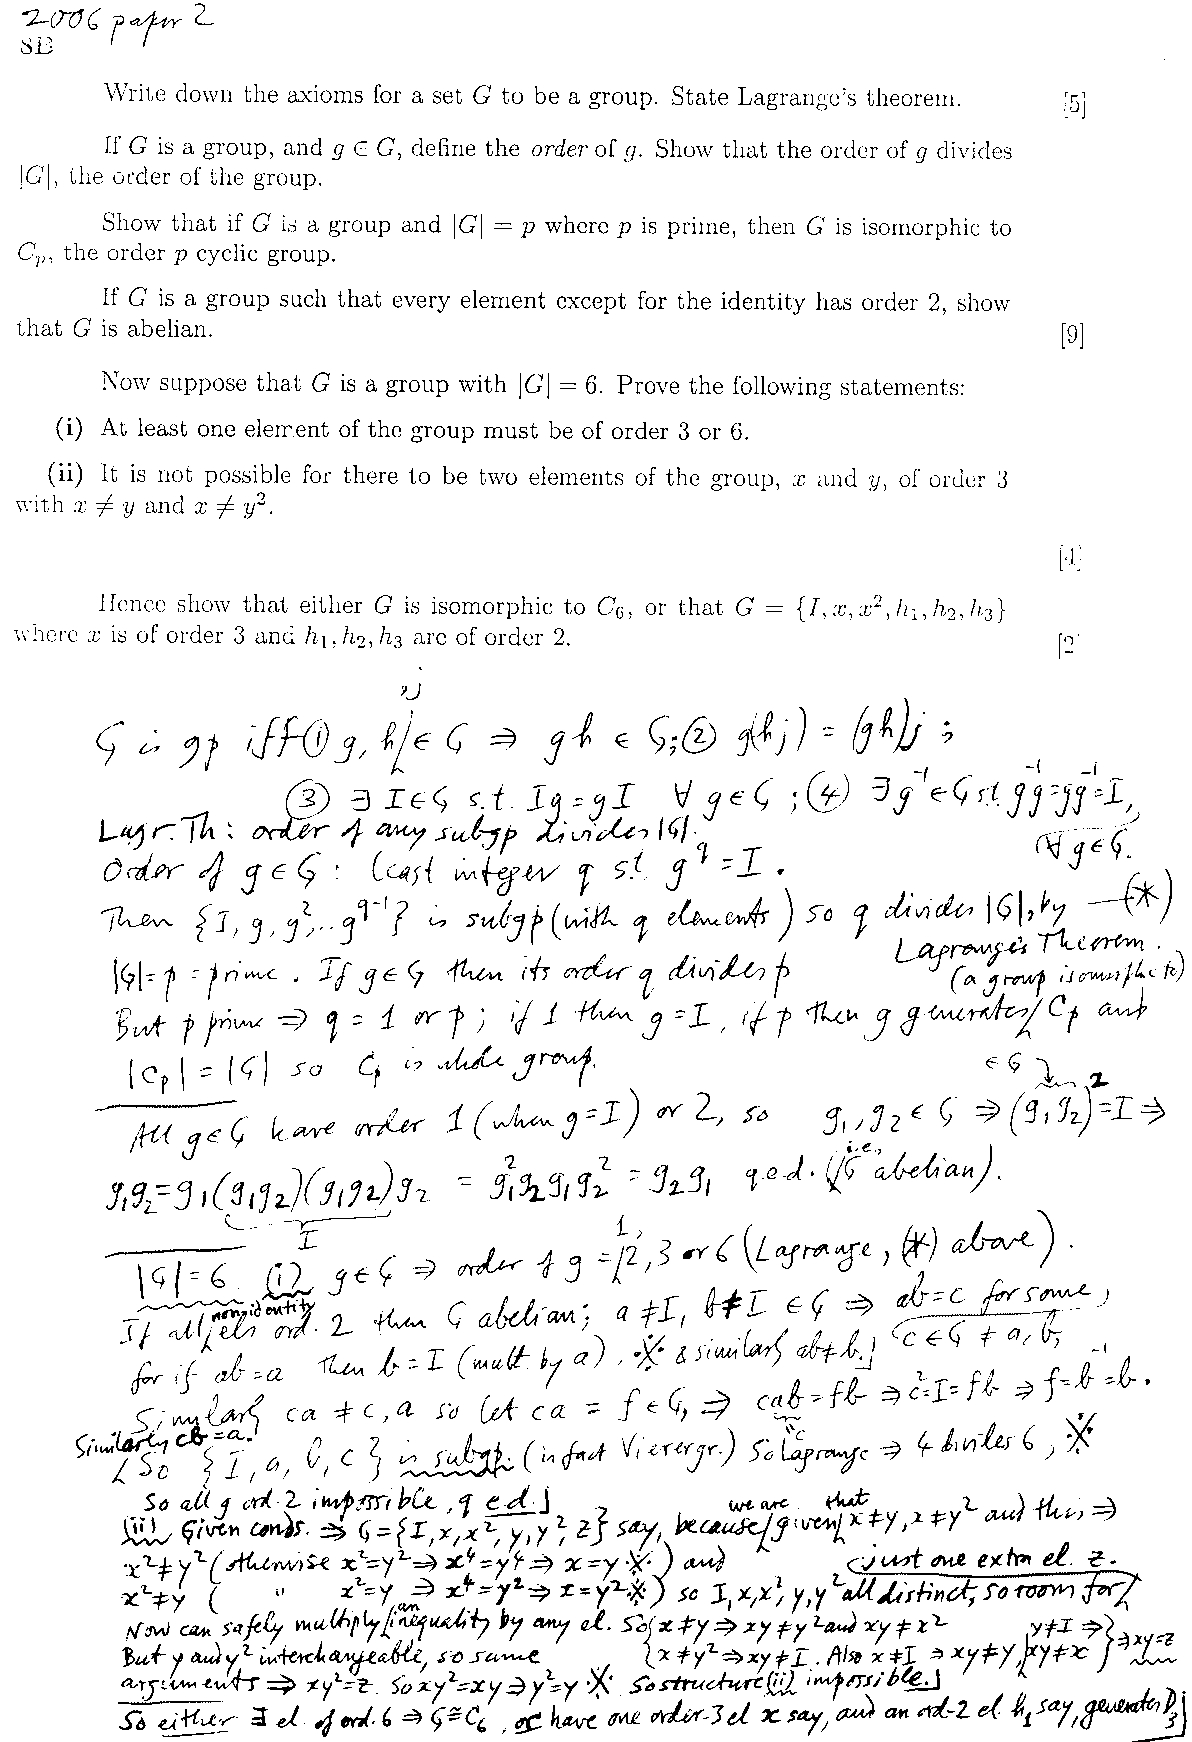 2006 paper 2
8B
Write down the axioms for a set G to be a group. State Lagrange's theorem. [5]
If G is a group, and g ∈ G, define the order of g. Show that the order of g divides
|G|, the order of the group.
Show that if G is a group and |G| = p where p is prime, then G is isomorphic to
Cp, the order p cyclic group.
If G is a group such that every element except for the identity has order 2, show
that G is abelian. [9]
Now suppose that G is a group with |G| = 6. Prove the following statements:
(i) At least one element of the group must be of order 3 or 6.
(ii) It is not possible for there to be two elements of the group, x and y, of order 3
with x ≠ y and x ≠ y².
[4]
Hence show that either G is isomorphic to C₆, or that G = {I, x, x², h₁, h₂, h₃}
where x is of order 3 and h₁, h₂, h₃ are of order 2. [2]
G is gp iff ① g, h, j ∈ G ⇒ gh ∈ G; ② g(hj) = (gh)j ;
③ ∃ I ∈ G s.t. Ig = gI ∀ g ∈ G ; ④ ∃ g⁻¹ ∈ G s.t. g⁻¹g = gg⁻¹ = I,
∀ g ∈ G.
Lagr. Th: order of any subgp divides |G|.
Order of g ∈ G : least integer q s.t. g^q = I .
Then {I, g, g², .. g^(q-1)} is subgp (with q elements) so q divides |G|, by —(*)
Lagrange's Theorem.
|G| = p = prime. If g ∈ G then its order q divides p
But p prime ⇒ q = 1 or p ; if 1 then g = I, if p then g generates (a group isomorphic to) Cp and
|Cp| = |G| so Cp is whole group.
All g ∈ G have order 1 (when g = I) or 2, so g₁, g₂ ∈ G ⇒ (g₁g₂)² = I ⇒
∈ G
g₁g₂ = g₁(g₁g₂)(g₁g₂)g₂ = g₁²g₂g₁g₂² = g₂g₁ q.e.d. (i.e., G abelian).
I
|G| = 6 (i) g ∈ G ⇒ order of g = 1, 2, 3 or 6 (Lagrange, (*) above).
If all nonidentity els ord. 2 then G abelian; a ≠ I, b ≠ I ∈ G ⇒ ab = c for some
c ∈ G ≠ a, b,
for if ab = a then b = I (mult. by a), ※ & similarly ab ≠ b.]
Similarly ca ≠ c, a so let ca = f ∈ G, ⇒ cab = fb ⇒ c² = I = fb ⇒ f = b⁻¹ = b.
Similarly cb = a.
So {I, a, b, c} is subgp. (in fact Vierergr.) So Lagrange ⇒ 4 divides 6, ※
So all g ord. 2 impossible, q.e.d.]
(ii) Given conds. ⇒ G = {I, x, x², y, y², z} say, because we are given that x ≠ y, x ≠ y² and this ⇒
x² ≠ y² (otherwise x² = y² ⇒ x⁴ = y⁴ ⇒ x = y ※) and
x² ≠ y ( " x² = y ⇒ x⁴ = y² ⇒ x = y² ※) so I, x, x², y, y² all distinct, so room for just one extra el. z.
Now can safely multiply an inequality by any el. So { x ≠ y ⇒ xy ≠ y² and xy ≠ x² y ≠ I ⇒
But y and y² interchangeable, so same { x ≠ y² ⇒ xy ≠ I. Also x ≠ I ⇒ xy ≠ y, xy ≠ x } ⇒ xy = z
arguments ⇒ xy² = z. So xy² = xy ⇒ y² = y ※. So structure (ii) impossible.]
So either ∃ el. of ord. 6 ⇒ G ≅ C₆, or have one order-3 el x say, and an ord-2 el. h₁ say, generates D₃]